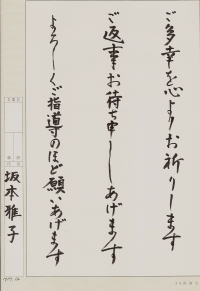 ご多幸を心よりお祈りします
ご返事お待ち申しあげます
よろしくご指導のほど願いあげます
坂本雅子